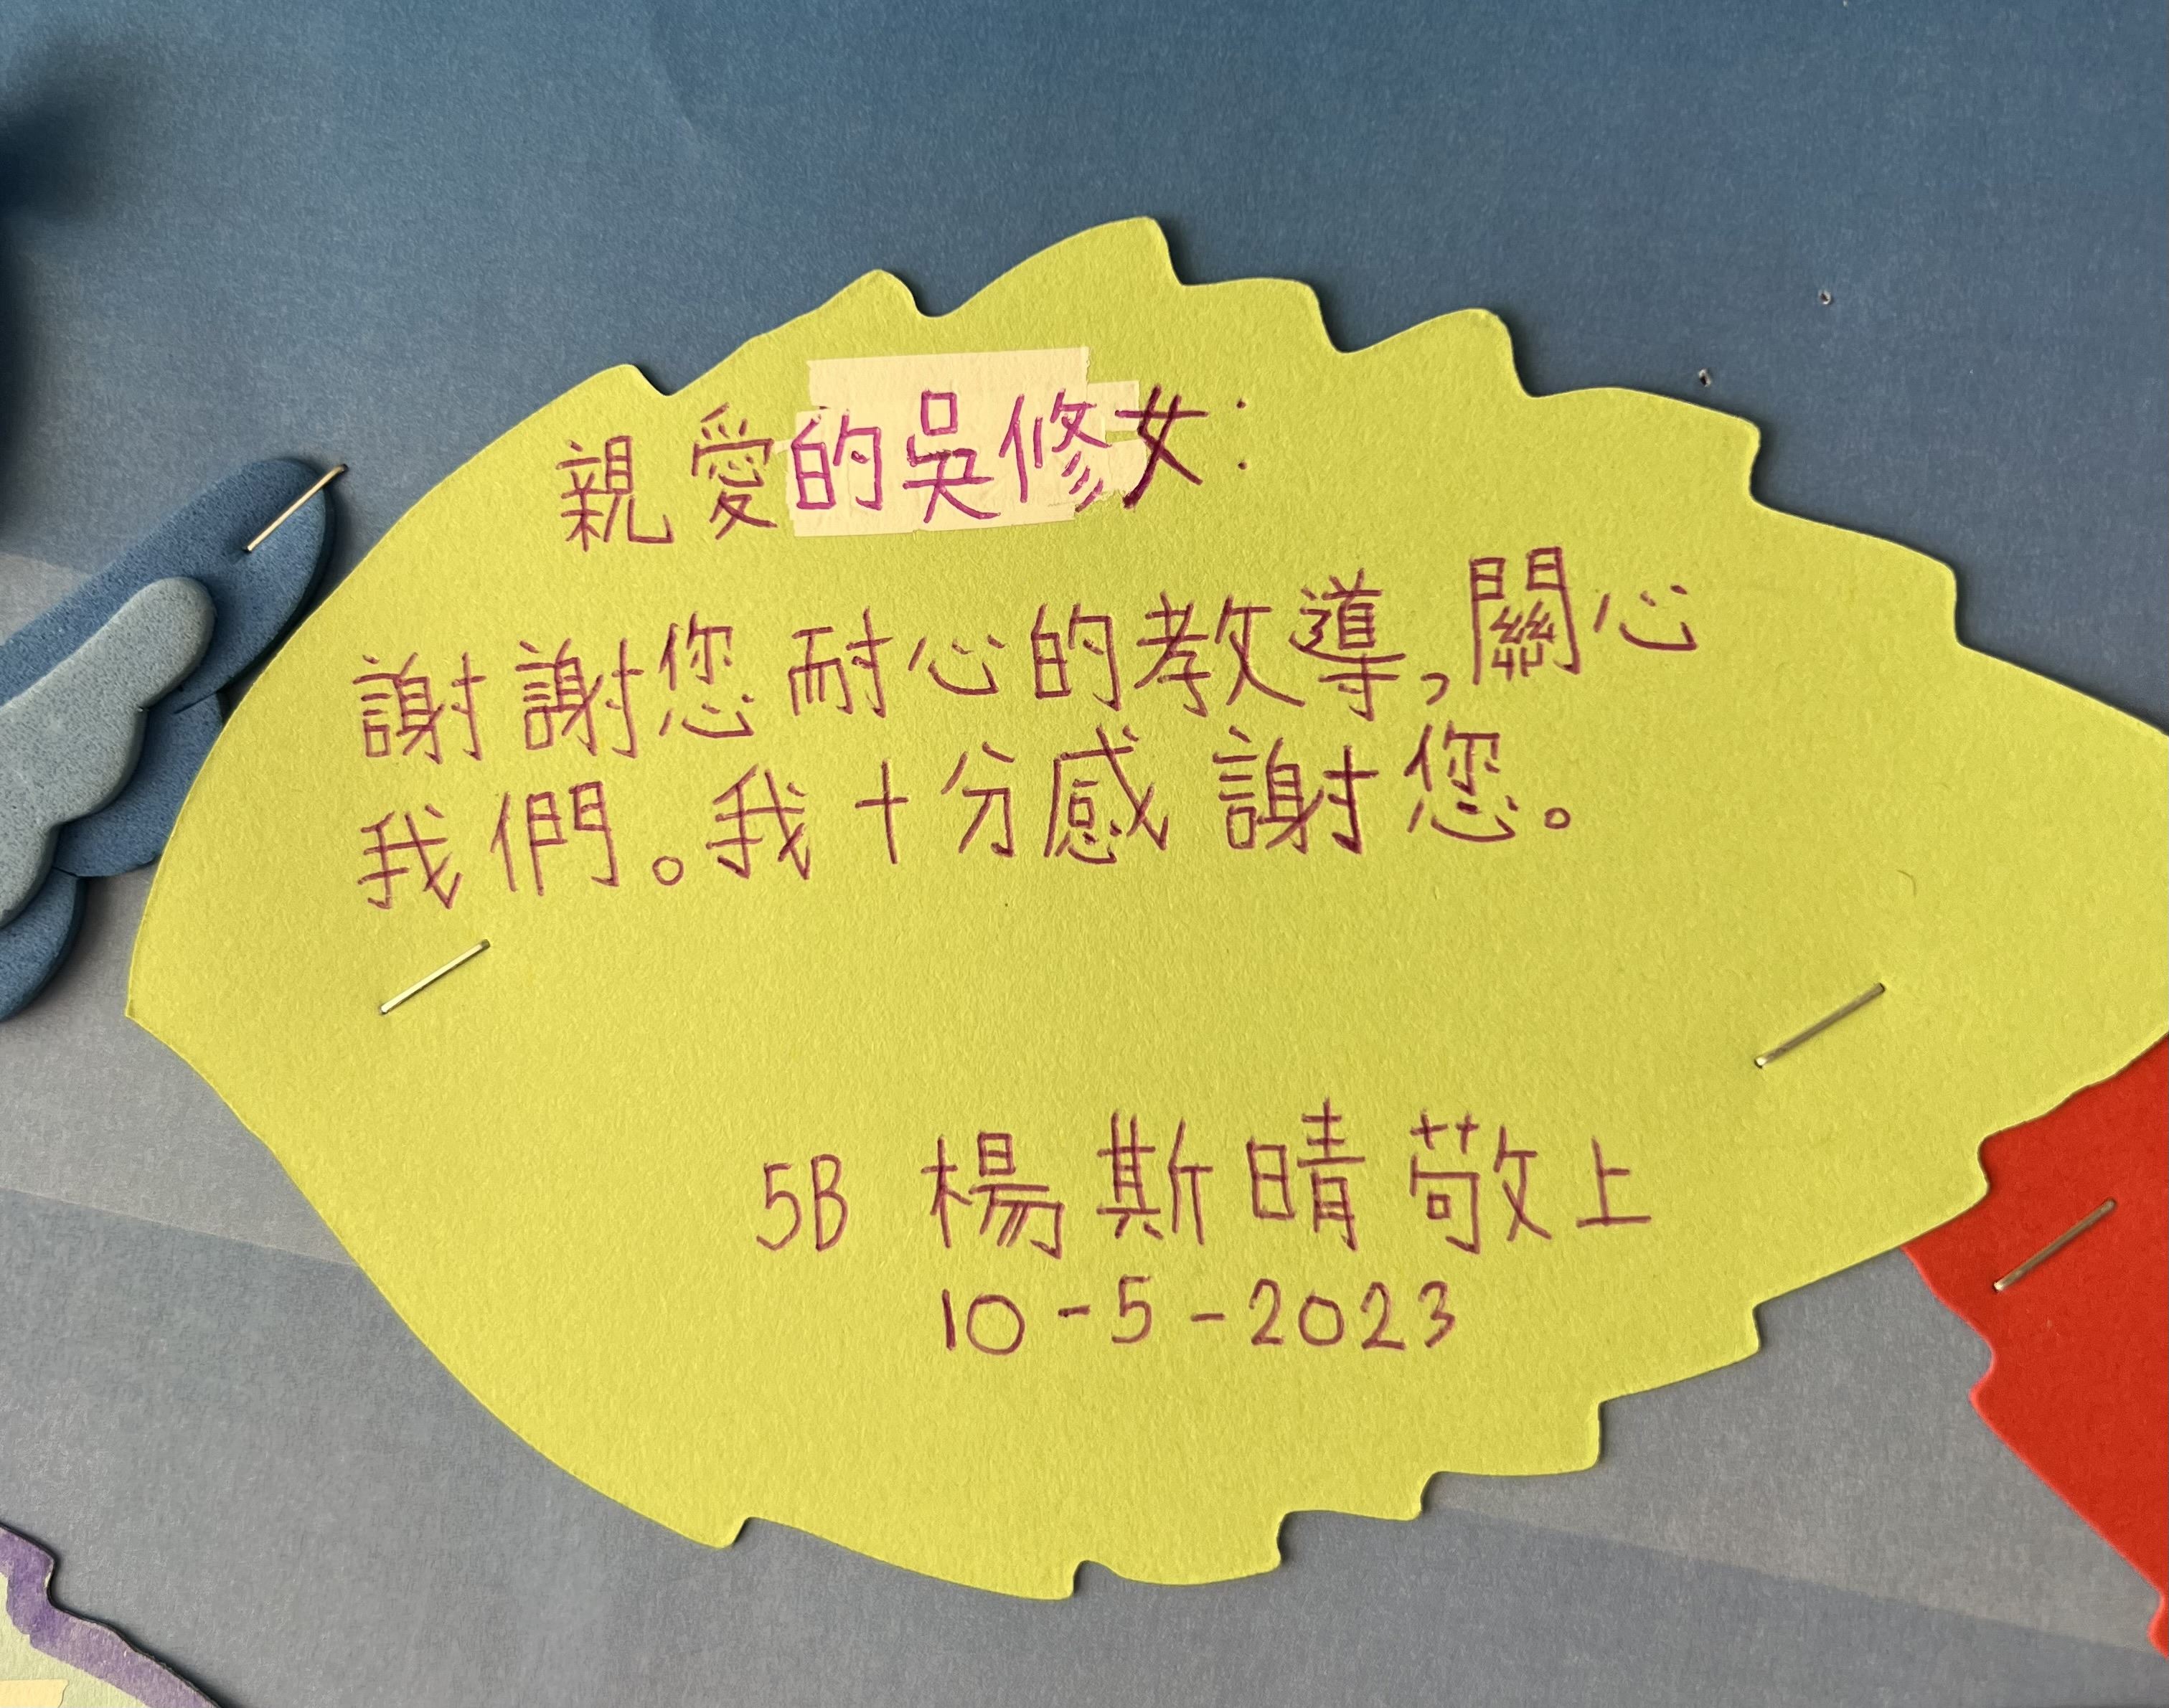 親愛的吳修女:
謝謝您耐心的教導,關心
我們。我十分感謝您。
5B 楊斯晴敬上
10-5-2023